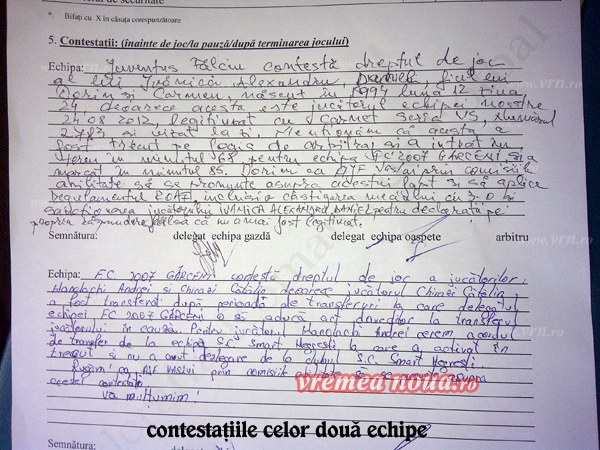 * Bifați cu X în căsuța corespunzătoare
5. Contestații: (înainte de joc/la pauză/după terminarea jocului)
Echipa: Juventus Fălciu contestă dreptul de joc
al lui Ivănică Alexandru, Daniel, fiul lui
Dorin și Carmen, născut în 1994 luna 12 ziua
24 deoarece acesta este jucătorul echipei noastre
24.08.2012, legitimat cu carnet seria VS, numărul
2783 și vizat la zi. Menționăm că acesta a
fost trecut pe foaia de arbitraj și a intrat în
teren în minutul 68, pentru echipa FC 2007 GÂRCENI, și a
marcat în minutul 85. Dorim ca AJF Vaslui prin comisiile
abilitate să se pronunțe asupra acestui fapt și să aplice
regulamentul ROAF, inclusiv câștigarea meciului cu 3-0 și
sancționarea jucătorului IVĂNICĂ ALEXANDRU DANIEL pentru declarație pe
propria răspundere falsă că nu a mai fost legitimat.
Semnătura: delegat echipa gazdă delegat echipa oaspete arbitru
Echipa: F.C. 2007 GÂRCENI contestă dreptul de joc a jucătorilor:
Hanghachi Andrei și Chirazi Cătălin deoarece jucătorul Chirazi Cătălin
a fost transferat după perioada de transferuri la care delegatul
echipei FC 2007 GÂRCENI o să aducă act doveditor a transferului
jucătorului în cauză. Pentru jucătorul Hanghachi Andrei cerem acordul
de transfer de la echipa S.C. Smart Negrești la care a activat în
trecut și nu a avut dezlegare de la clubul S.C. Smart Negrești
Rugăm ca AJF VASLUI prin comisiile abilitate să se pronunțe asupra
acestei contestații
Vă mulțumim!
vremea noua.ro
www.vrn.ro
contestațiile celor două echipe
Semnătura: delegat